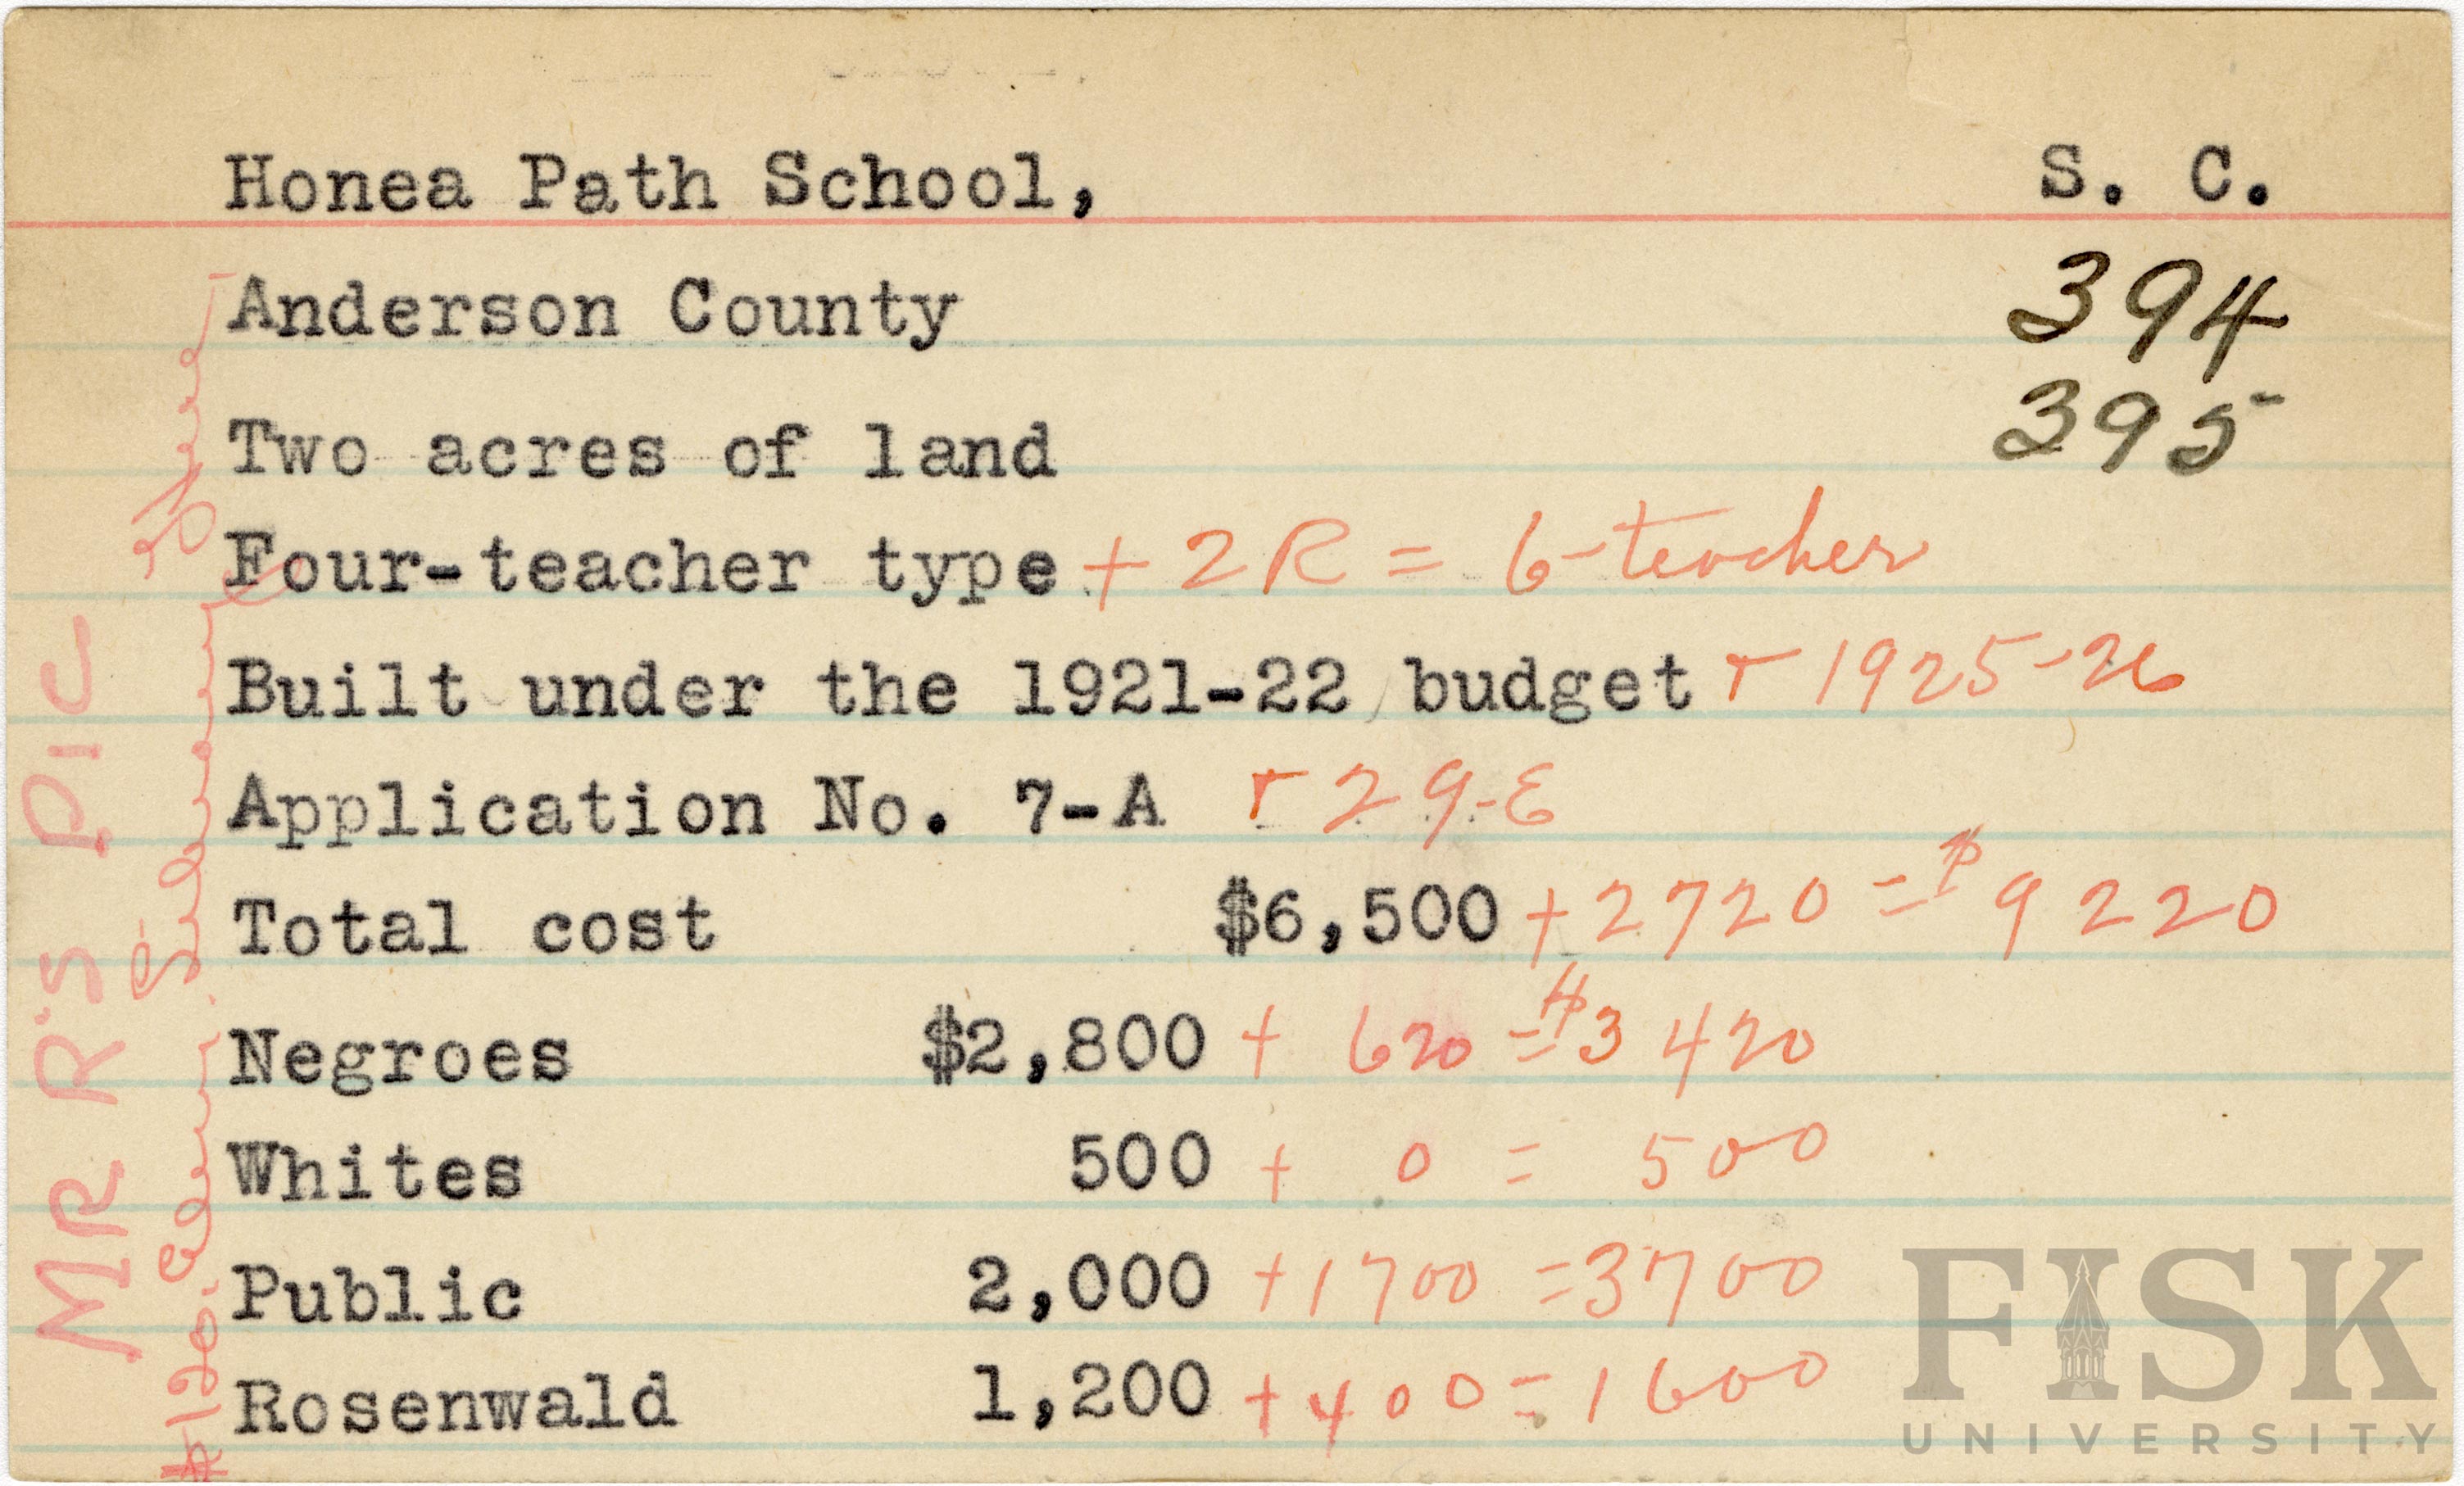 Honea Path School, S. C.
394
Anderson County
395
Two acres of land
Four-teacher type + 2R = 6-teacher
Built under the 1921-22 budget + 1925-26
Application No. 7-A + 29-E
Total cost $6,500 + 2720 = $9220
Negroes $2,800 + 620 = $3420
Whites 500 + 0 = 500
Public 2,000 + 1700 = 3700
Rosenwald 1,200 + 400 = 1600
MR R'S PIC
$120. Elem. Library
FISK
UNIVERSITY